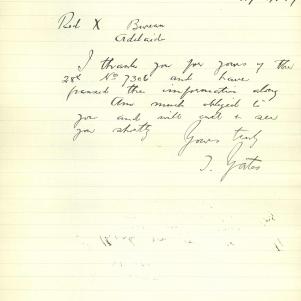 Red X Bureau
Adelaide
I thank you for yours of the
28th No 7306 and have
passed the information along
Am much obliged to
you and will call & see
you shortly
Yours truly
J. Yates